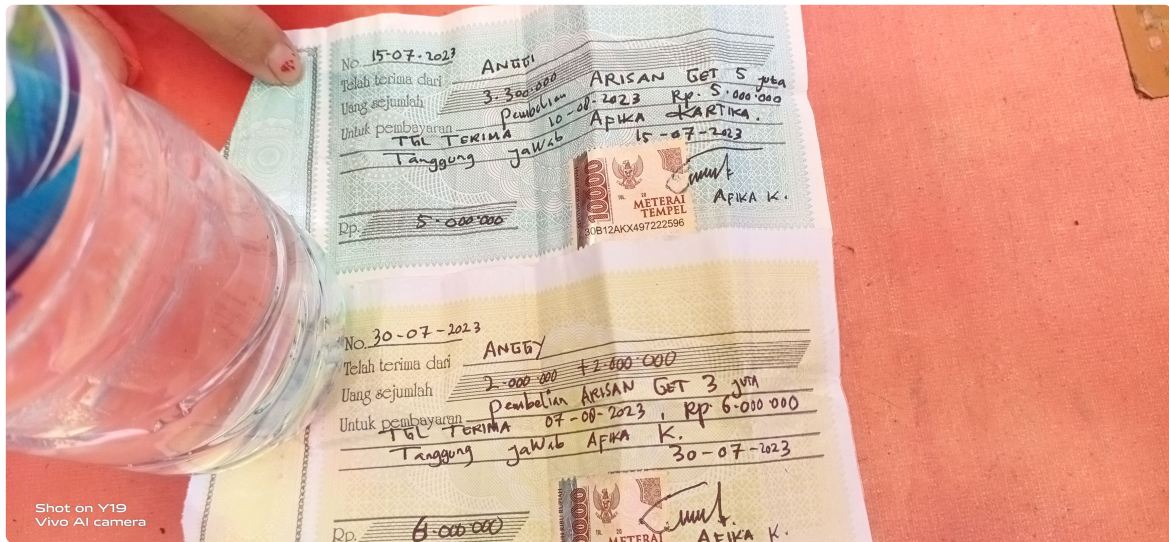 No. 15-07-2023
Telah terima dari ANGGI
Uang sejumlah 3.300.000
Untuk pembayaran Pembelian ARISAN GET 5 juta
TGL TERIMA 10-08-2023 Rp. 5.000.000
Tanggung jaWab AfIKA KARTIKA.
15-07-2023
10000
METERAI
TEMPEL
30B12AKX497222596
AFIKA K.
Rp. 5.000.000
No. 30-07-2023
Telah terima dari ANGGY
Uang sejumlah 2.000.000 + 2.000.000
Untuk pembayaran Pembelian ARISAN GET 3 JUTA
TGL TERIMA 07-08-2023, Rp. 6.000.000
Tanggung jaWab AFIKA K.
30-07-2023
METERAI
AFIKA K.
Rp. 6.000.000
Shot on Y19
Vivo AI camera